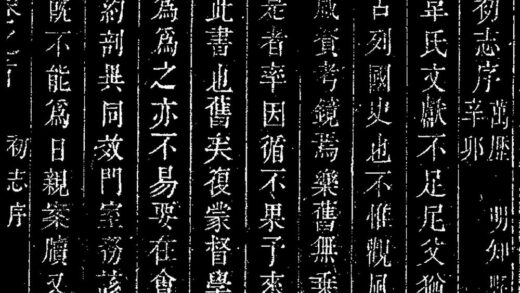 初志序 萬歷辛卯 明知縣
氏文獻不足尼父猶
古列國史也不惟觀風
咸資考鏡焉樂舊無乘
是者率因循不果予來
此書也舊矣復蒙督學
爲之亦不易要在會
約剖異同效門室務該
既不能爲日親案牘又
初志序